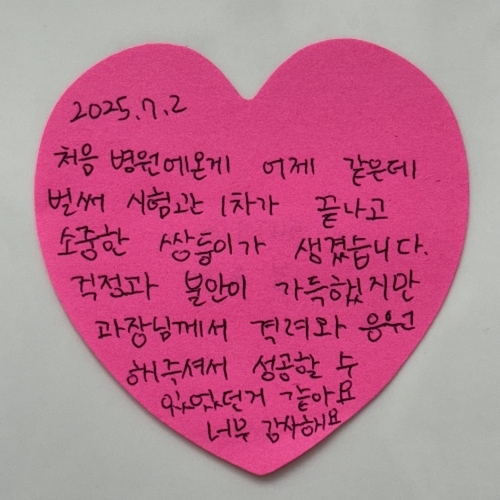 2025.7.2
처음 병원에온게 어제 같은데
벌써 시험관 1차가 끝나고
소중한 쌍둥이가 생겼습니다.
걱정과 불안이 가득했지만
과장님께서 격려와 응원
해주셔서 성공할 수
있었던거 같아요
너무 감사해요